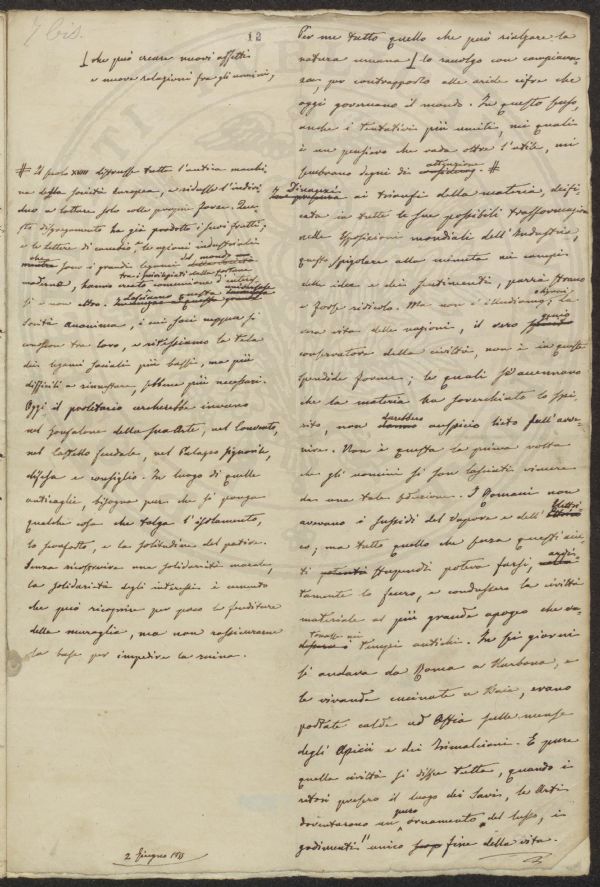 7 bis.
12
che può creare nuovi affetti
e nuove relazioni fra gli uomini,
# Il secolo XVIII distrusse tutta l'antica macchi-
na della società Europea, e ridusse l'indivi-
duo a lottare solo colle proprie forze. Que-
sto disgregamento ha già prodotto i suoi frutti;
e le lettere di cambio e le azioni industriali
che sono i grandi legami del mondo
moderno, hanno creato comunione d'interes-
si e non altro.
società anonima, i cui soci neppur si
conoscon tra loro, e ritessiamo la tela
dei legami sociali più bassi, ma più
difficili a rinnovare, sebbene più necessari.
Oggi il proletario cercherebbe invano
nel gonfalone della sua Arte, nel Convento,
nel Castello feudale, nel Palagio signorile,
difesa e consiglio. In luogo di quelle
anticaglie, bisogna pure che si ponga
qualche cosa che tolga l'isolamento,
lo sconforto, e la solitudine del patire.
Senza ricostruire una solidarietà morale,
la solidarietà degli interessi è cemento
che può ricoprire per poco le fenditure
della muraglia, ma non rassicurarne
la base per impedire la ruina.
2 Giugno
Per me tutto quello che può rialzare la
natura umana lo raccolgo con compiacen-
za, per contrapposto alle aride cifre che
oggi governano il mondo. In questo senso,
anche i tentativi più umili, nei quali
è un pensiero che vada oltre l'utile, mi
sembrano degni di attenzione. #
Dinanzi ai trionfi della materia, deifi-
cata in tutte le sue possibili trasformazioni
nelle Esposizioni mondiali dell'Industria,
questo spigolare alla minuta nei campi
delle idee e dei sentimenti, parrà strano
e forse ridicolo. Ma non c'illudiamo; la
vera vita delle nazioni, il vero genio
conservatore della civiltà, non è in queste
splendide forme; le quali se accennano
che la materia ha soverchiato lo spi-
rito, non darebbero auspicio lieto sull'avve-
nire. Non è questa la prima volta
che gli uomini si son lasciati vincere
da una tale seduzione. I Romani non
avevano i sussidi del Vapore e dell'Elettri-
co; ma tutto quello che senza questi aiu-
ti stupendi poteva farsi, ardi-
tamente lo fecero, e condussero la civiltà
materiale al più grande apogeo che
toccasse nei tempi antichi. In sei giorni
si andava da Roma a Narbona, e
le vivande cucinate a Baia, erano
portate calde ad Ostia sulle mense
degli Apicii e dei Trimalcioni. E pure
quella civiltà si disfece tutta, quando i
retori presero il luogo dei Savi, le Arti
doventarono un puro ornamento del lusso, i
godimenti unico fine della vita.